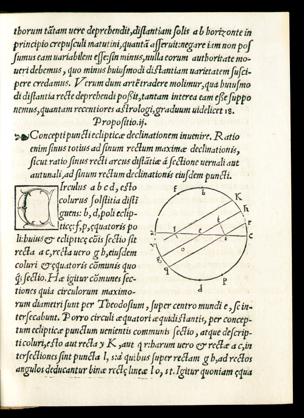 thorum tãtam uere deprehendit, distantiam solis ab horizonte in
principio crepusculi matutini, quantã asseruit: negare iam non pos
sumus eam uariabilem esse: sin minus, nulla eorum authoritate mo-
ueri debemus, quo minus huiusmodi distantiam uarietatem susci-
pere credamus. Verum dum arte tradere molimur, qua huiusmo
di distantia recte deprehendi possit, tantam interea eam esse suppo
nemus, quantam recentiores astrologi, graduum uidelicet 18.
Propositio .ij.
Concepti puncti eclipticæ declinationem inuenire. Ratio
enim sinus totius ad sinum rectum maximæ declinationis,
sicut ratio sinus recti arcus distãtiæ á sectione uernali aut
autunali, ad sinum rectum declinationis eiusdem puncti.
Circulus a b c d, esto
colurus solstitia disti
guens: b, d, poli eclip-
ticæ: f, p, equatoris po
li: huius & eclipticæ cõis sectio sit
recta a c, recta uero g h, eiusdem
coluri & equatoris cõmunis quo
q; sectio. Hæ igitur cõmunes sec-
tiones quia circulorum maximo-
rum diametri sunt per Theodosium, super centro mundi e, se in-
tersecabunt. Porro circuli æquatori æquidistantis, per concep-
tum eclipticæ punctum uenientis communis sectio, atque descrip-
ti coluri, esto aut recta y K, aut q r: harum uero & rectæ a c, in
tersectiones sint puncta l, s: á quibus super rectam g h, ad rectos
angulos deducantur binæ rectæ lineæ l o, s t. Igitur quoniam equa